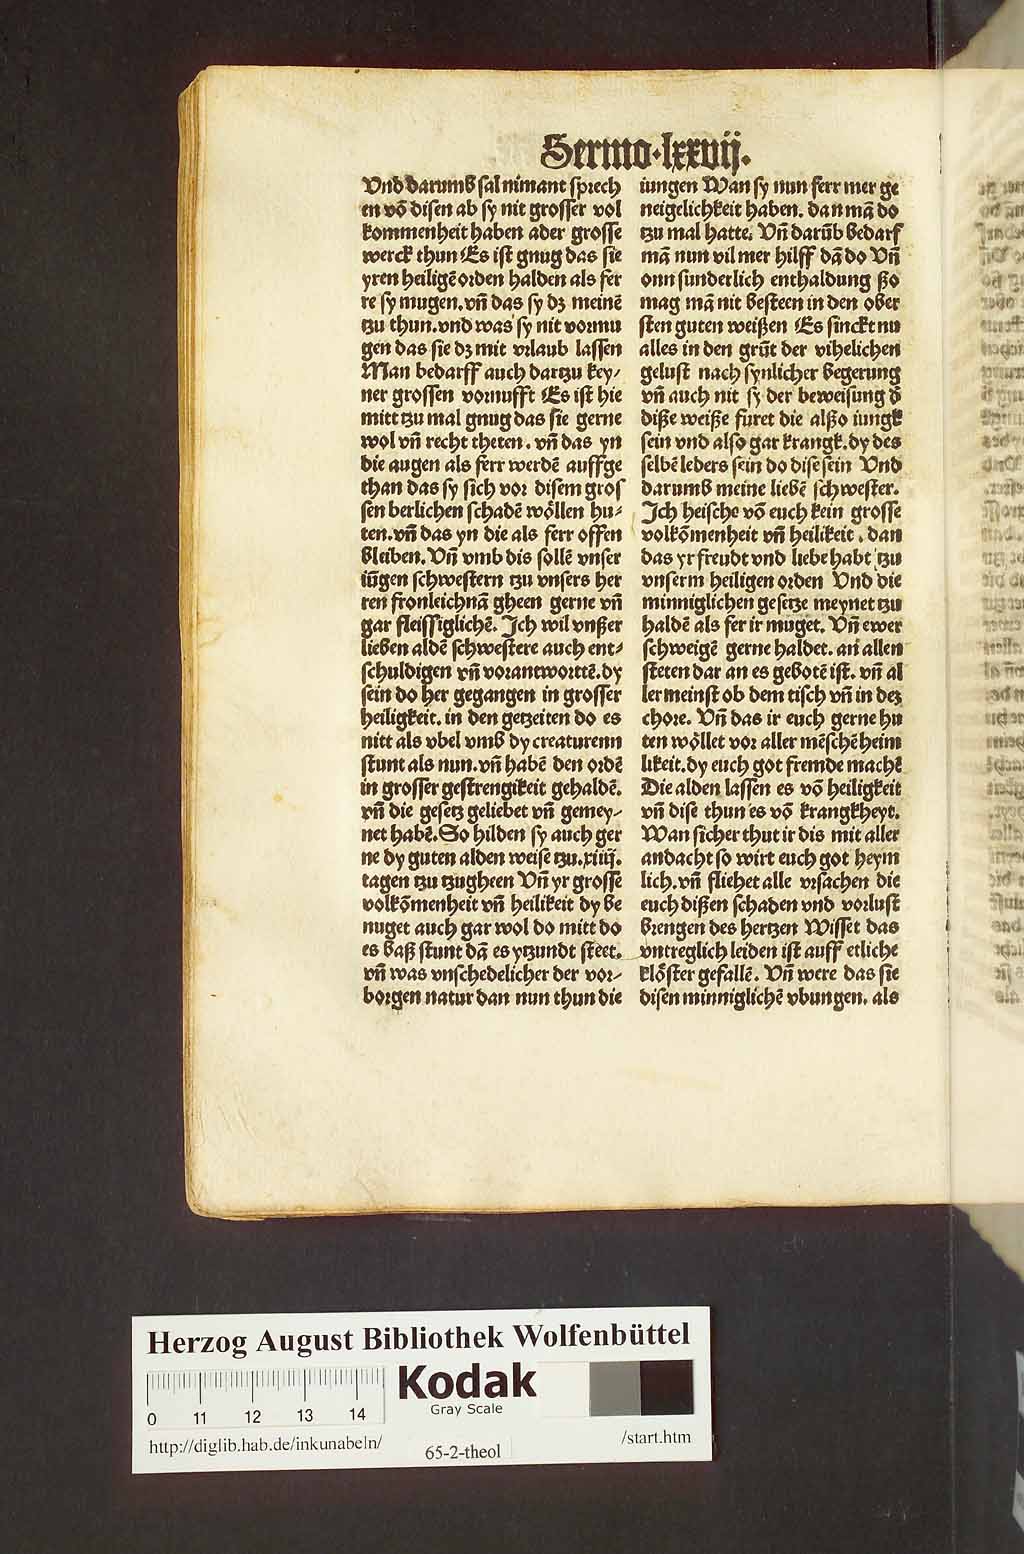 Sermo·lxxvij.
Vnd darumb sal nimant sprech
en võ disen ab sy nit grosser vol
kommenheit haben ader grosse
werck thun Es ist gnug das sie
yren heiligẽ orden halden als fer
re sy mugen. vñ das sy dz meinẽ
tzu thun. vnd was sy nit vormu
gen das sie dz mit vrlaub lassen
Man bedarff auch dartzu key⸗
ner grossen vornufft Es ist hie
mitt tzu mal gnug das sie gerne
wol vñ recht theten. vñ das yn
die augen als ferr werdẽ auffge
than das sy sich vor disem gros
sen berlichen schadẽ wöllen hu⸗
ten. vñ das yn die als ferr offen
bleiben. Vñ vmb dis sollẽ vnser
iũgen schwestern tzu vnsers her
ren fronleichnã gheen gerne vñ
gar fleissiglichẽ. Ich wil vnßer
lieben aldẽ schwestere auch ent⸗
schuldigen vñ vorantworttẽ. dy
sein do her gegangen in grosser
heiligkeit. in den getzeiten do es
nitt als vbel vmb dy creaturenn
stunt als nun. vñ habẽ den ordẽ
in grosser gestrengikeit gehaldẽ.
vñ die gesetz geliebet vñ gemey⸗
net habẽ. So hilden sy auch ger
ne dy guten alden weise tzu. xiiij.
tagen tzu tzugheen Vñ yr grosse
volkõmenheit vñ heilikeit dy be
nuget auch gar wol do mitt do
es baß stunt dã es ytzundt steet.
vñ was vnschedelicher der vor⸗
borgen natur dan nun thun die
iungen Wan sy nun ferr mer ge
neigelichkeit haben. dan mã do
tzu mal hatte. Vñ darũb bedarf
mã nun vil mer hilff dã do Vñ
onn sunderlich enthaldung ßo
mag mã nit besteen in den ober
sten guten weißen Es sinckt nu
alles in den grũt der vihelichen
gelust nach synlicher begerung
vñ auch nit sy der beweisung d̕
diße weiße furet die alßo iungk
sein vnd also gar krangk. dy des
selbẽ leders sein do dise sein Vnd
darumb meine liebẽ schwester.
Ich heische võ euch kein grosse
volkõmenheit vñ heilikeit. dan
das yr freudt vnd liebe habt tzu
vnserm heiligen orden Vnd die
minniglichen gesetze meynet tzu
haldẽ als fer ir muget. Vñ ewer
schweigẽ gerne haldet. an allen
steten dar an es gebotẽ ist. vñ al
ler meinst ob dem tisch vñ in dez
chore. Vñ das ir euch gerne hu
ten wöllet vor aller mẽschẽ heim
likeit. dy euch got fremde machẽ
Die alden lassen es võ heiligkeit
vñ dise thun es võ krangkheyt.
Wan sicher thut ir dis mit aller
andacht so wirt euch got heym
lich. vñ fliehet alle vrsachen die
euch dißen schaden vnd vorlust
brengen des hertzen Wisset das
vntreglich leiden ist auff etliche
klöster gefallẽ. Vñ were das sie
disen minniglichẽ vbungen. als
Herzog August Bibliothek Wolfenbüttel
Kodak
Gray Scale
0 11 12 13 14
http://diglib.hab.de/inkunabeln/
65-2-theol
/start.htm